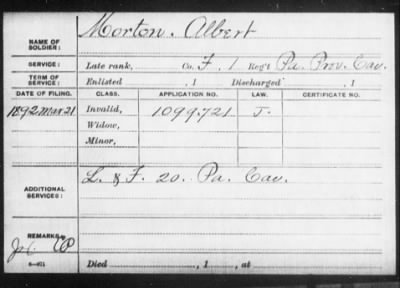 NAME OF SOLDIER: Morton, Albert
SERVICE: Late rank, Co. F, 1 Reg't Pa. Prov. Cav.
TERM OF SERVICE: Enlisted , 1 Discharged , 1
DATE OF FILING. CLASS. APPLICATION NO. LAW. CERTIFICATE NO.
1892 Mar 21 Invalid, 1099.721 J.
Widow,
Minor,
ADDITIONAL SERVICES: L. & F. 20. Pa. Cav.
REMARKS:
Died , 1 , at